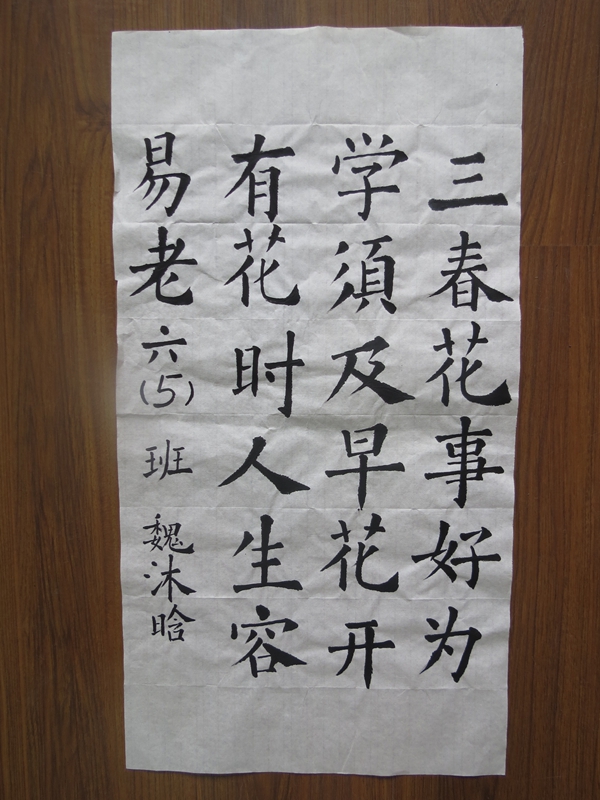 三春花事好为
学须及早花开
有花时人生容
易老六(5)班魏沐晗